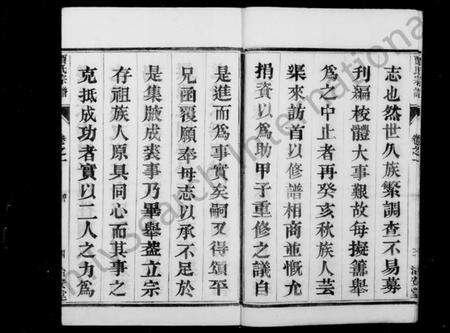 志也然世久族繁調查不易募
刋編梭體大事艱故每擬籌舉
為之中止者再癸亥秋族人芸
渠來訪首以修譜相商並慨允
捐資以為助甲子重修之議自
是進而為事實矣嗣又得頌平
兄函覆願奉母志以承不足於
是集厳成裘事乃畢舉盖立宗
存祖族人原具同心而其事之
克抵成功者實以二人之力為